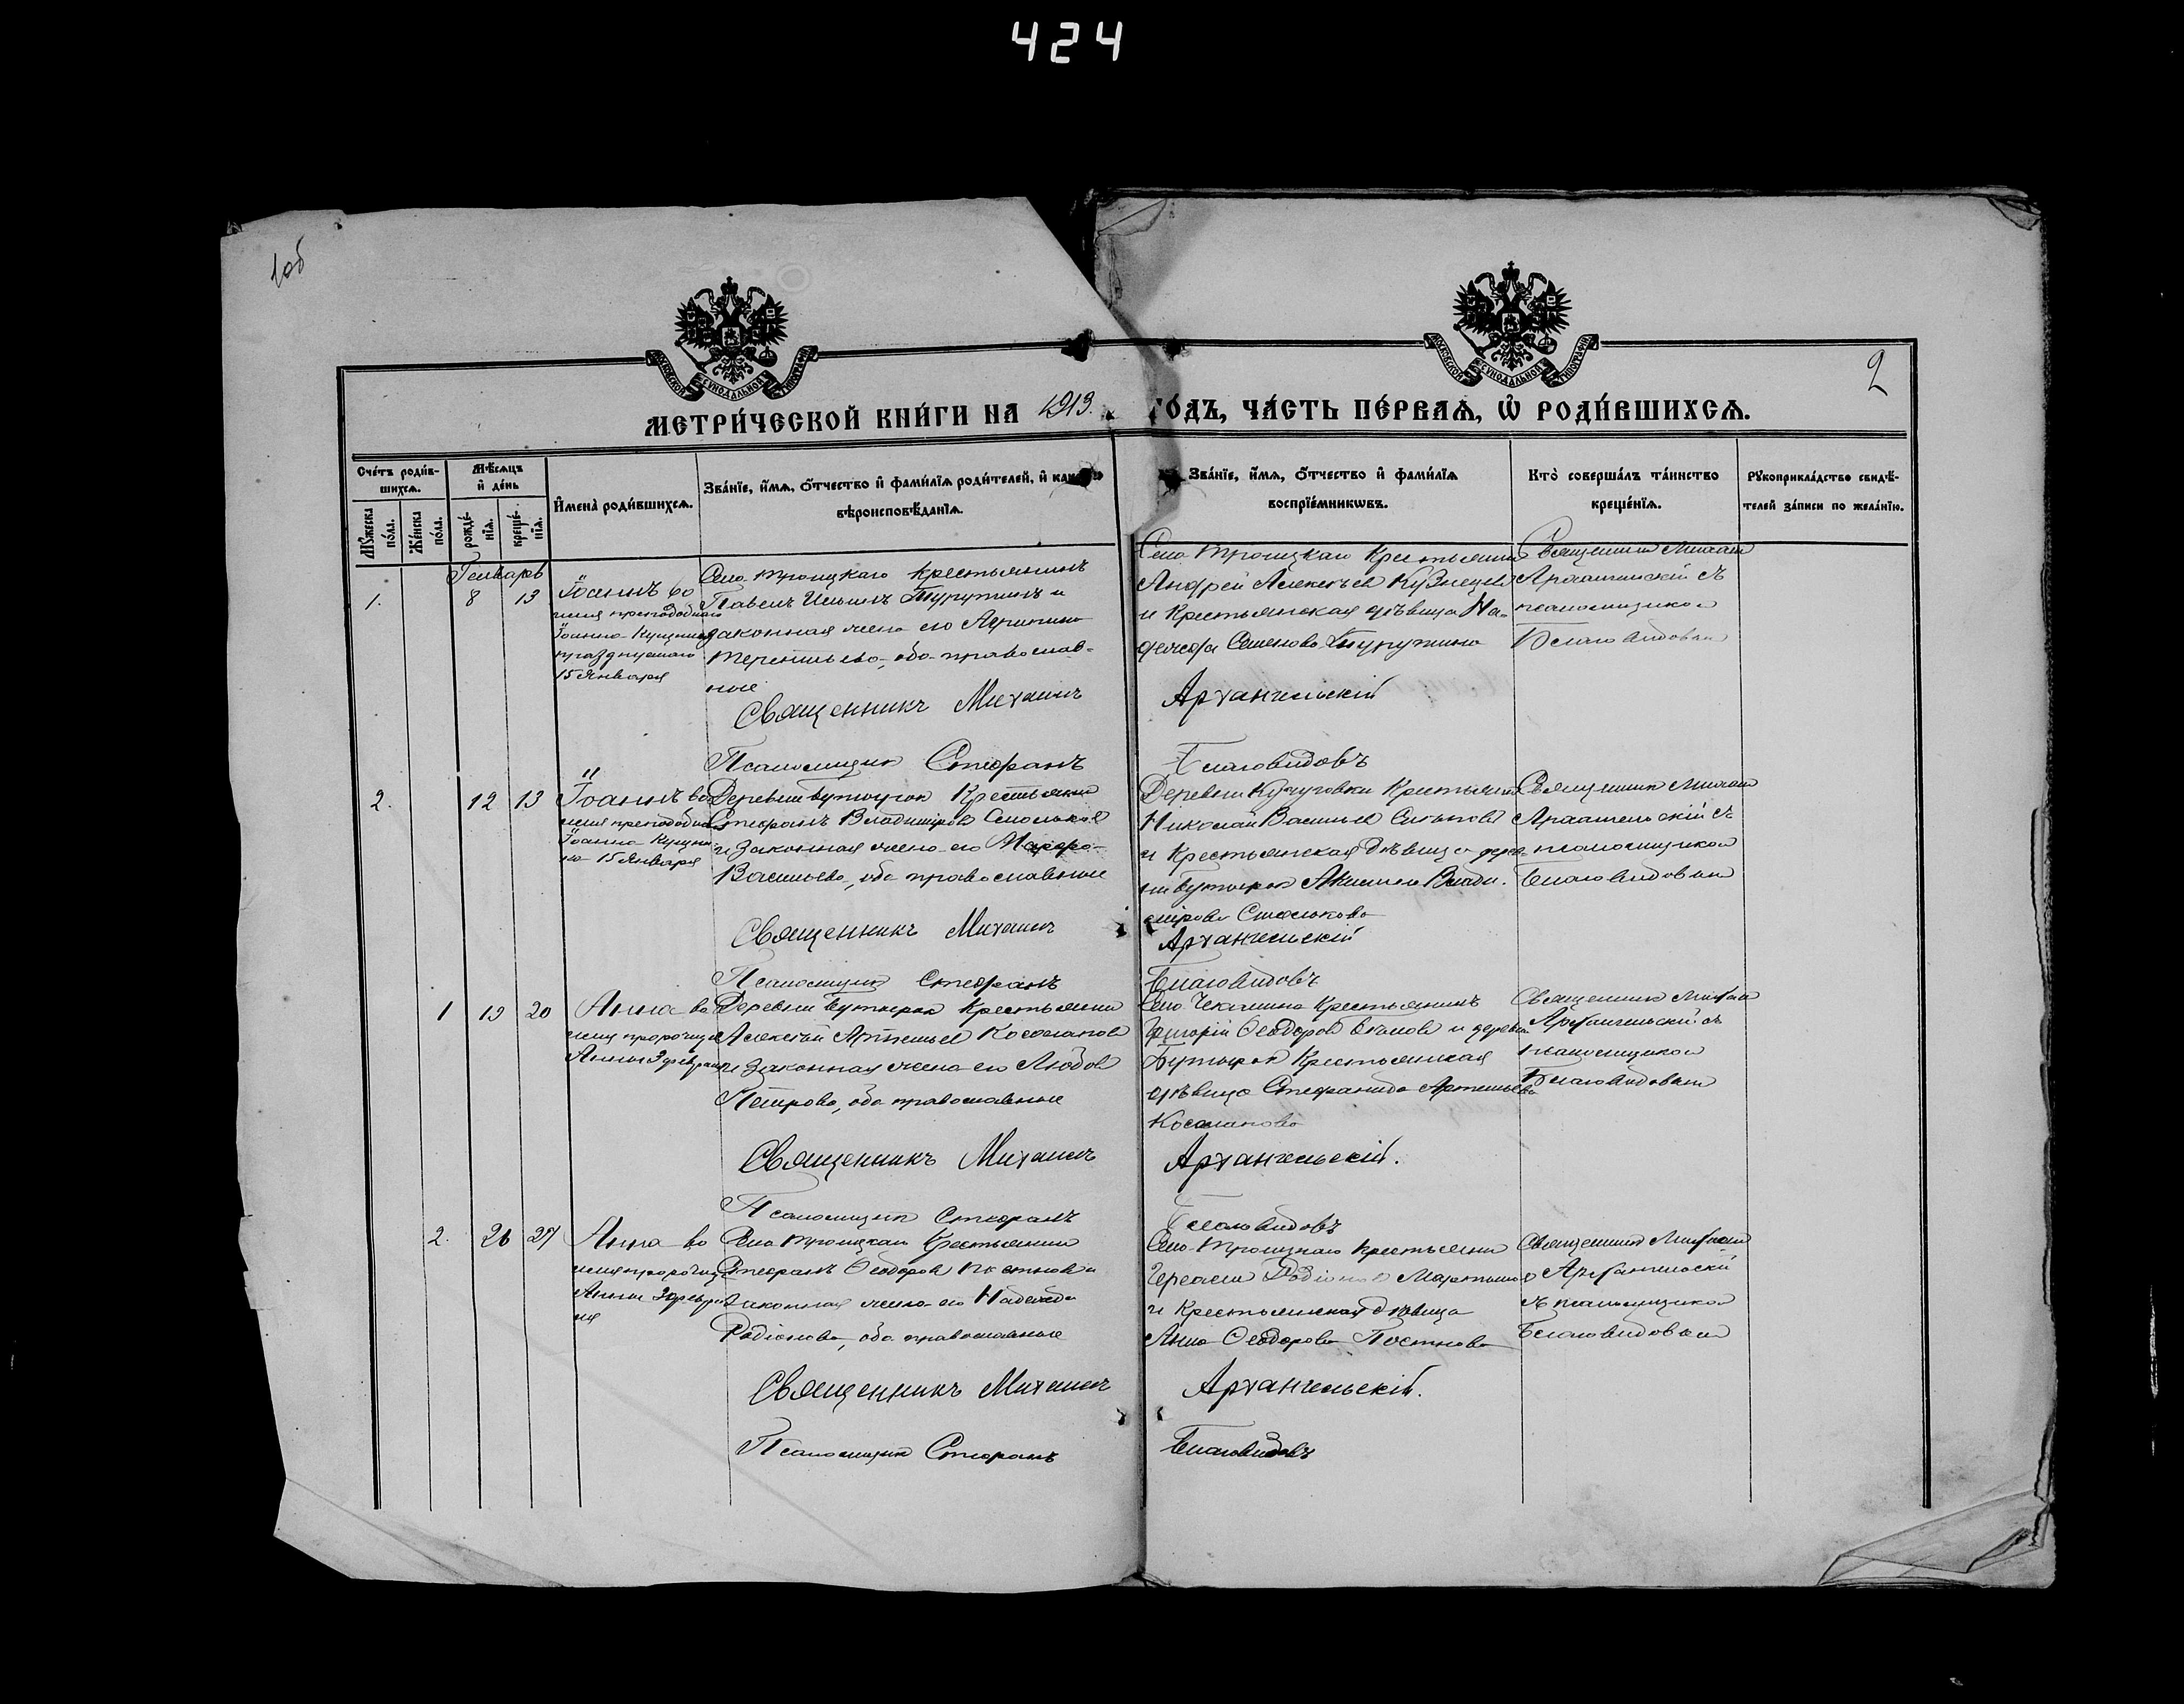 424
1об
2
МОСКОВСКОЙ СУНОДАЛЬНОЙ ТИПОГРАФІИ
МОСКОВСКОЙ СУНОДАЛЬНОЙ ТИПОГРАФІИ
МЕТРИ́ЧЕСКОЙ КНИ́ГИ НА 1913. ГО́ДЪ, ЧА́СТЬ ПЕ́РВАѦ, Ѡ҆ РОДИ́ВШИХСѦ.
Сче́тъ роди́в-
шихсѧ.
Мꙋ́жеска по́ла.
Же́нска по́ла.
Мѣ́сѧцъ
и҆ де́нь
рожде́-
нїѧ.
креще́-
нїѧ.
И҆мена̀ роди́вшихсѧ.
Зва́нїе, и҆́мѧ, ѻ҆́тчество и҆ фами́лїѧ роди́телей, и҆
вѣроисповѣ́данїѧ.
Зва́нїе, и҆́мѧ, ѻ҆́тчество и҆ фами́лїѧ
воспрїе́мникѡвъ.
Кто̀ соверша́лъ та́инство
креще́нїѧ.
Рꙋкоприкла́дство свидѣ́-
телей за́писи по жела́нїю.
Генварь
1.
8
13
Іоаннъ во
имя преподобнаго
Іоанна Кущника
празднуемаго
15 Января
Села Троицкаго Крестьянинъ
Павелъ Ильинъ Турутинъ и
законная жена его Агрипина
Терентьева, оба православ-
ные
Священникъ Михаилъ
Псаломщикъ Стефанъ
Села Троицкаго Крестьянинъ
Андрей Алексѣевъ Кузнецовъ
и Крестьянская дѣвица На-
дежда Семенова Турутина
Архангельскій
Благовидовъ
Священникъ Михаилъ
Архангельскій съ
псаломщикомъ
Благовидовымъ
2.
12
13
Іоаннъ во
имя преподобнаго
Іоанна Кущни-
ка 15 Января
Деревни Бутырок Крестьянин
Стефанъ Владиміров
и законная жена его
Васильева, оба православные
Священникъ Михаилъ
Псаломщикъ Стефанъ
Деревни Крестьянин
Николай Васильев
и Крестьянская дѣвица дерев-
ни Бутырок Акилина Влади-
мірова
Архангельскій
Благовидовъ
Священникъ Михаил
Архангельскій съ
псаломщиком
Благовидовым
1
19
20
Анна во
имя пророчицы
Анны 3 февраля
Деревни Бутырок Крестьянин
Алексѣй Артемьев
и законная жена его Любовь
Петрова, оба православные
Священникъ Михаилъ
Псаломщикъ Стефанъ
Село Чекалина Крестьянинъ
Григорій Ѳеодоров и деревни
Бутырок Крестьянская
дѣвица Стефанида Артемьева
Архангельскій.
Благовидовъ
Священник Михаил
Архангельскій съ
псаломщиком
Благовидовым
2.
26
27
Анна во
имя пророчицы
Анны 3 февра-
ля
Села Троицкаго Крестьянин
Стефанъ Ѳеодоров Постнов и
законная жена его Надежда
Родіонова, оба православные
Священникъ Михаилъ
Псаломщикъ Стефанъ
Села Троицкаго Крестьянин
Герасим Родіонов Мартынов
и Крестьянская дѣвица
Анна Ѳеодорова Постнова
Архангельскій.
Благовидовъ
Священник Михаил
Архангельскій
съ псаломщиком
Благовидовым